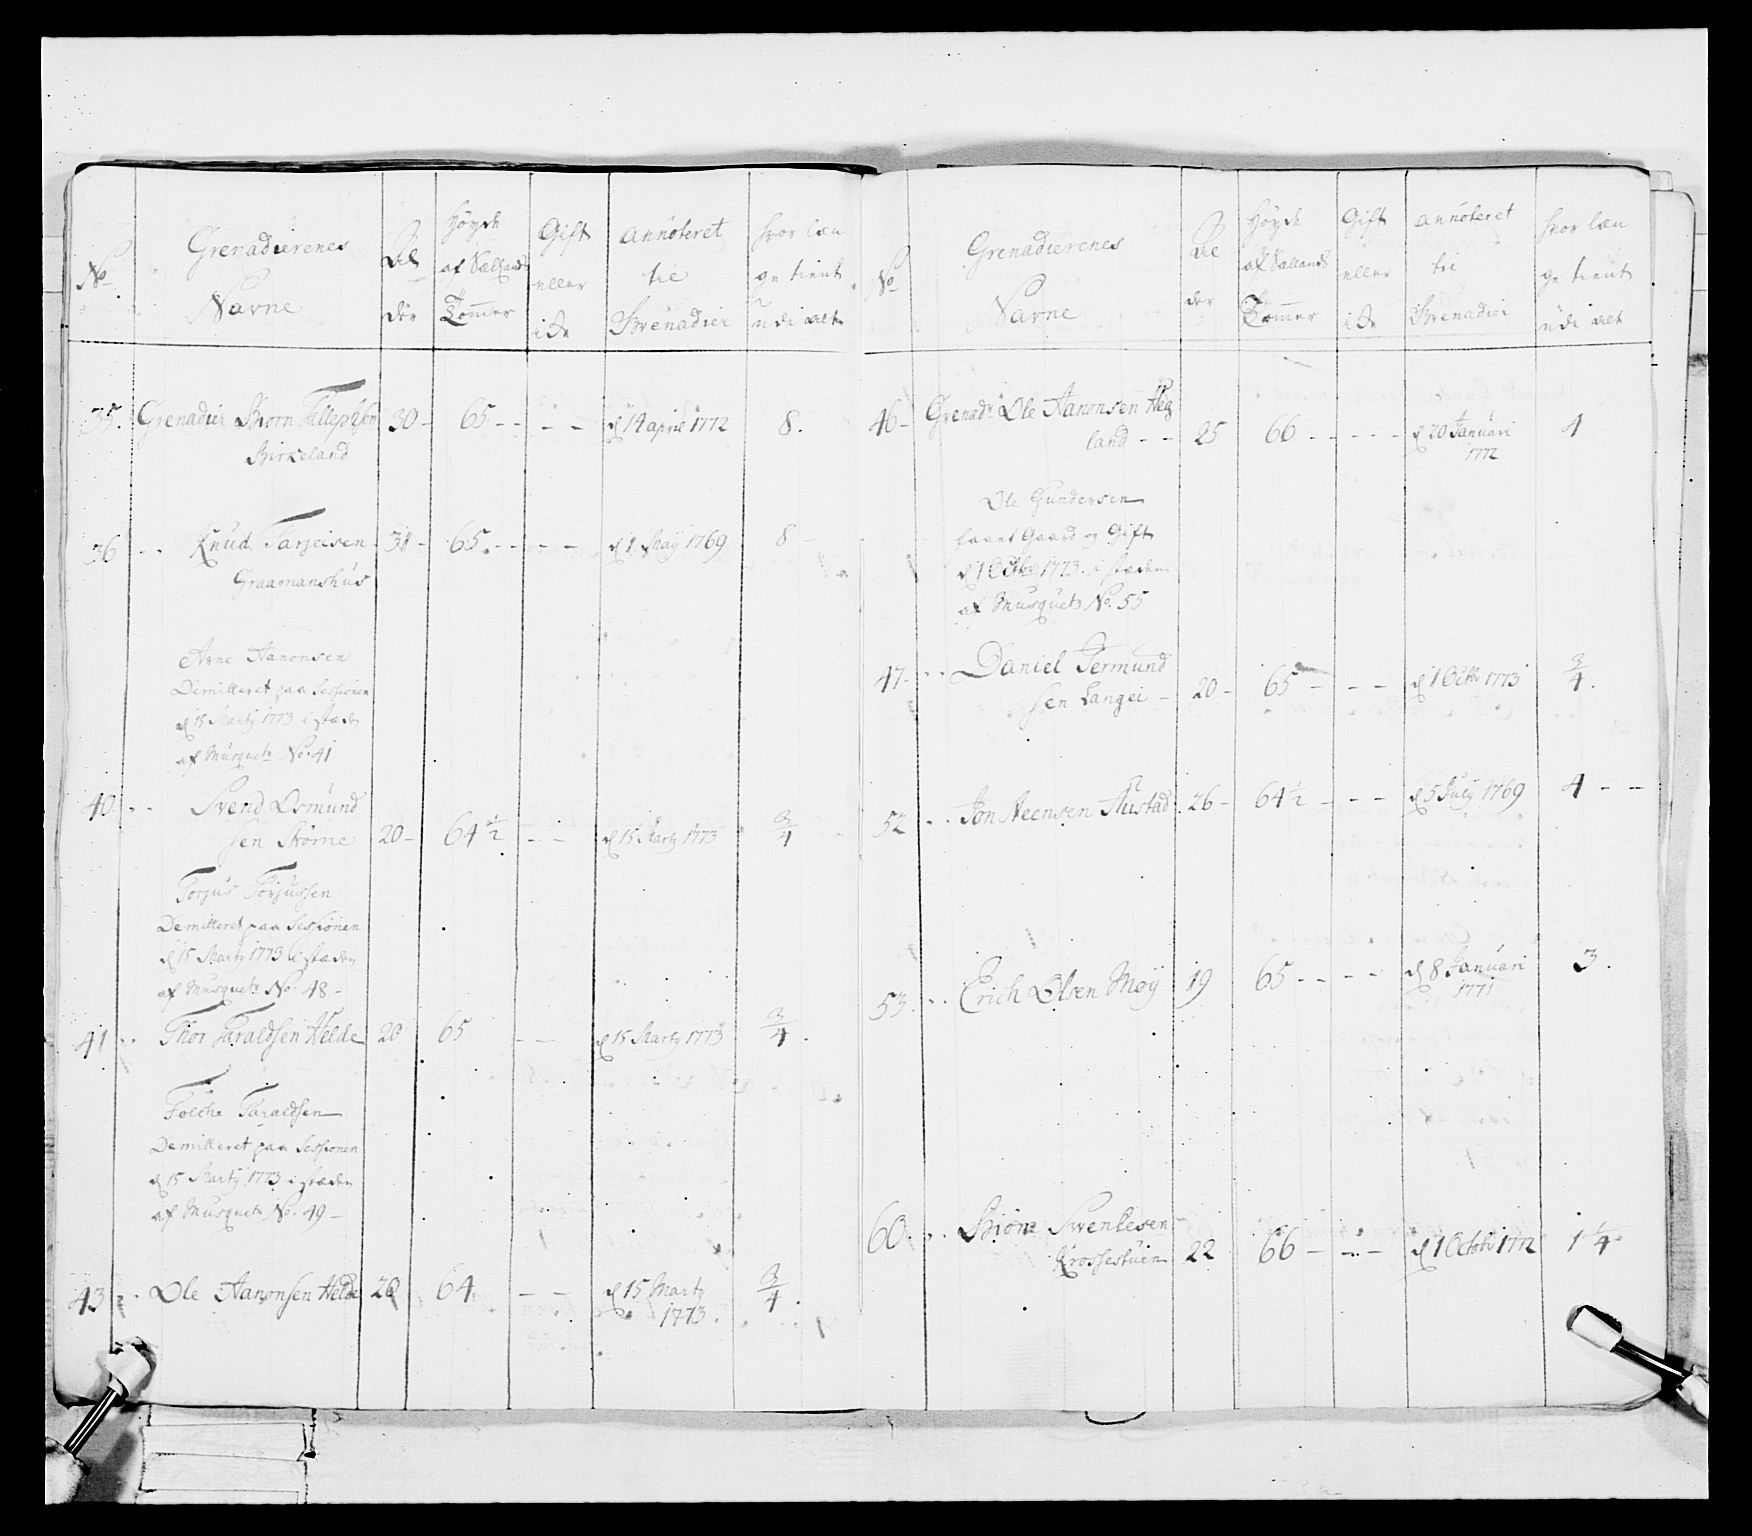 No
Grenadierenes
Navne
Al
der
Høyde
af Sællands
Tommer
Gift
eller
ide
annoteret
til
Grenadier
hvor læn
ge tient
udi alt
35. Grenadier Biorn Tellephsen 30 - 65 - - - - d 14 april 1772 8.
Birkeland
36 - - Knud Tarjeisen 31 - 65. - - - - d 1 May 1769 8 -
Graamanshus
Arne Aanonsen
Demitteret paa Sessionen
d 15 Marty 1773 i stæden
af Musquetr No. 41
40. - - Svend Osmund
sen Størne 20 - 64 1/2 - - d 15 Marty 1773 3/4
Torjus Torjussen
Demitteret paa Sessionen
d 15 Marty 1773 i stæden
af Musquetr No. 48 -
41 - - Thor Taraldsen Helde 20 65 - - d 15 Marty 1773 3/4.
Folche Taraldsen
Demitteret paa Sessionen
d 15 Marty 1773 i stæden
af Musquetr No. 49 -
43 - Ole Aanonsen Helde 20 64 - - d 15 Marty 3/4.
1773.
No
Grenadierenes
Navne
Al
der
Høyde
af Sællands
Tommer
Gift
eller
ide
annoteret
til
Grenadier
hvor læn
ge tient
udi alt
46 - Grenadr Ole Aanonsen Heg
land - - 25 66 - - - - d 20 Januari 4
1772
Ole Gundersen
faaet Gaard og Gift
d 1 Octbr 1773. i stæden
af Musquetr No. 55
47 - - - Daniel Germund
sen Langei - 20 - 65 - - - d 1 Octbr 1773 3/4.
52 - - Jon Steensen Austad. 26 - 64 1/2 - - - d 5 July 1769 4 - -
53. - - Erich Olsen Møy 19 65 - - - - d 8 Januari 3.
1771
60. - - Biørn Swenkesen
Krossestuen 22 66 - - - d 1 Octobr 1772 1 1/4